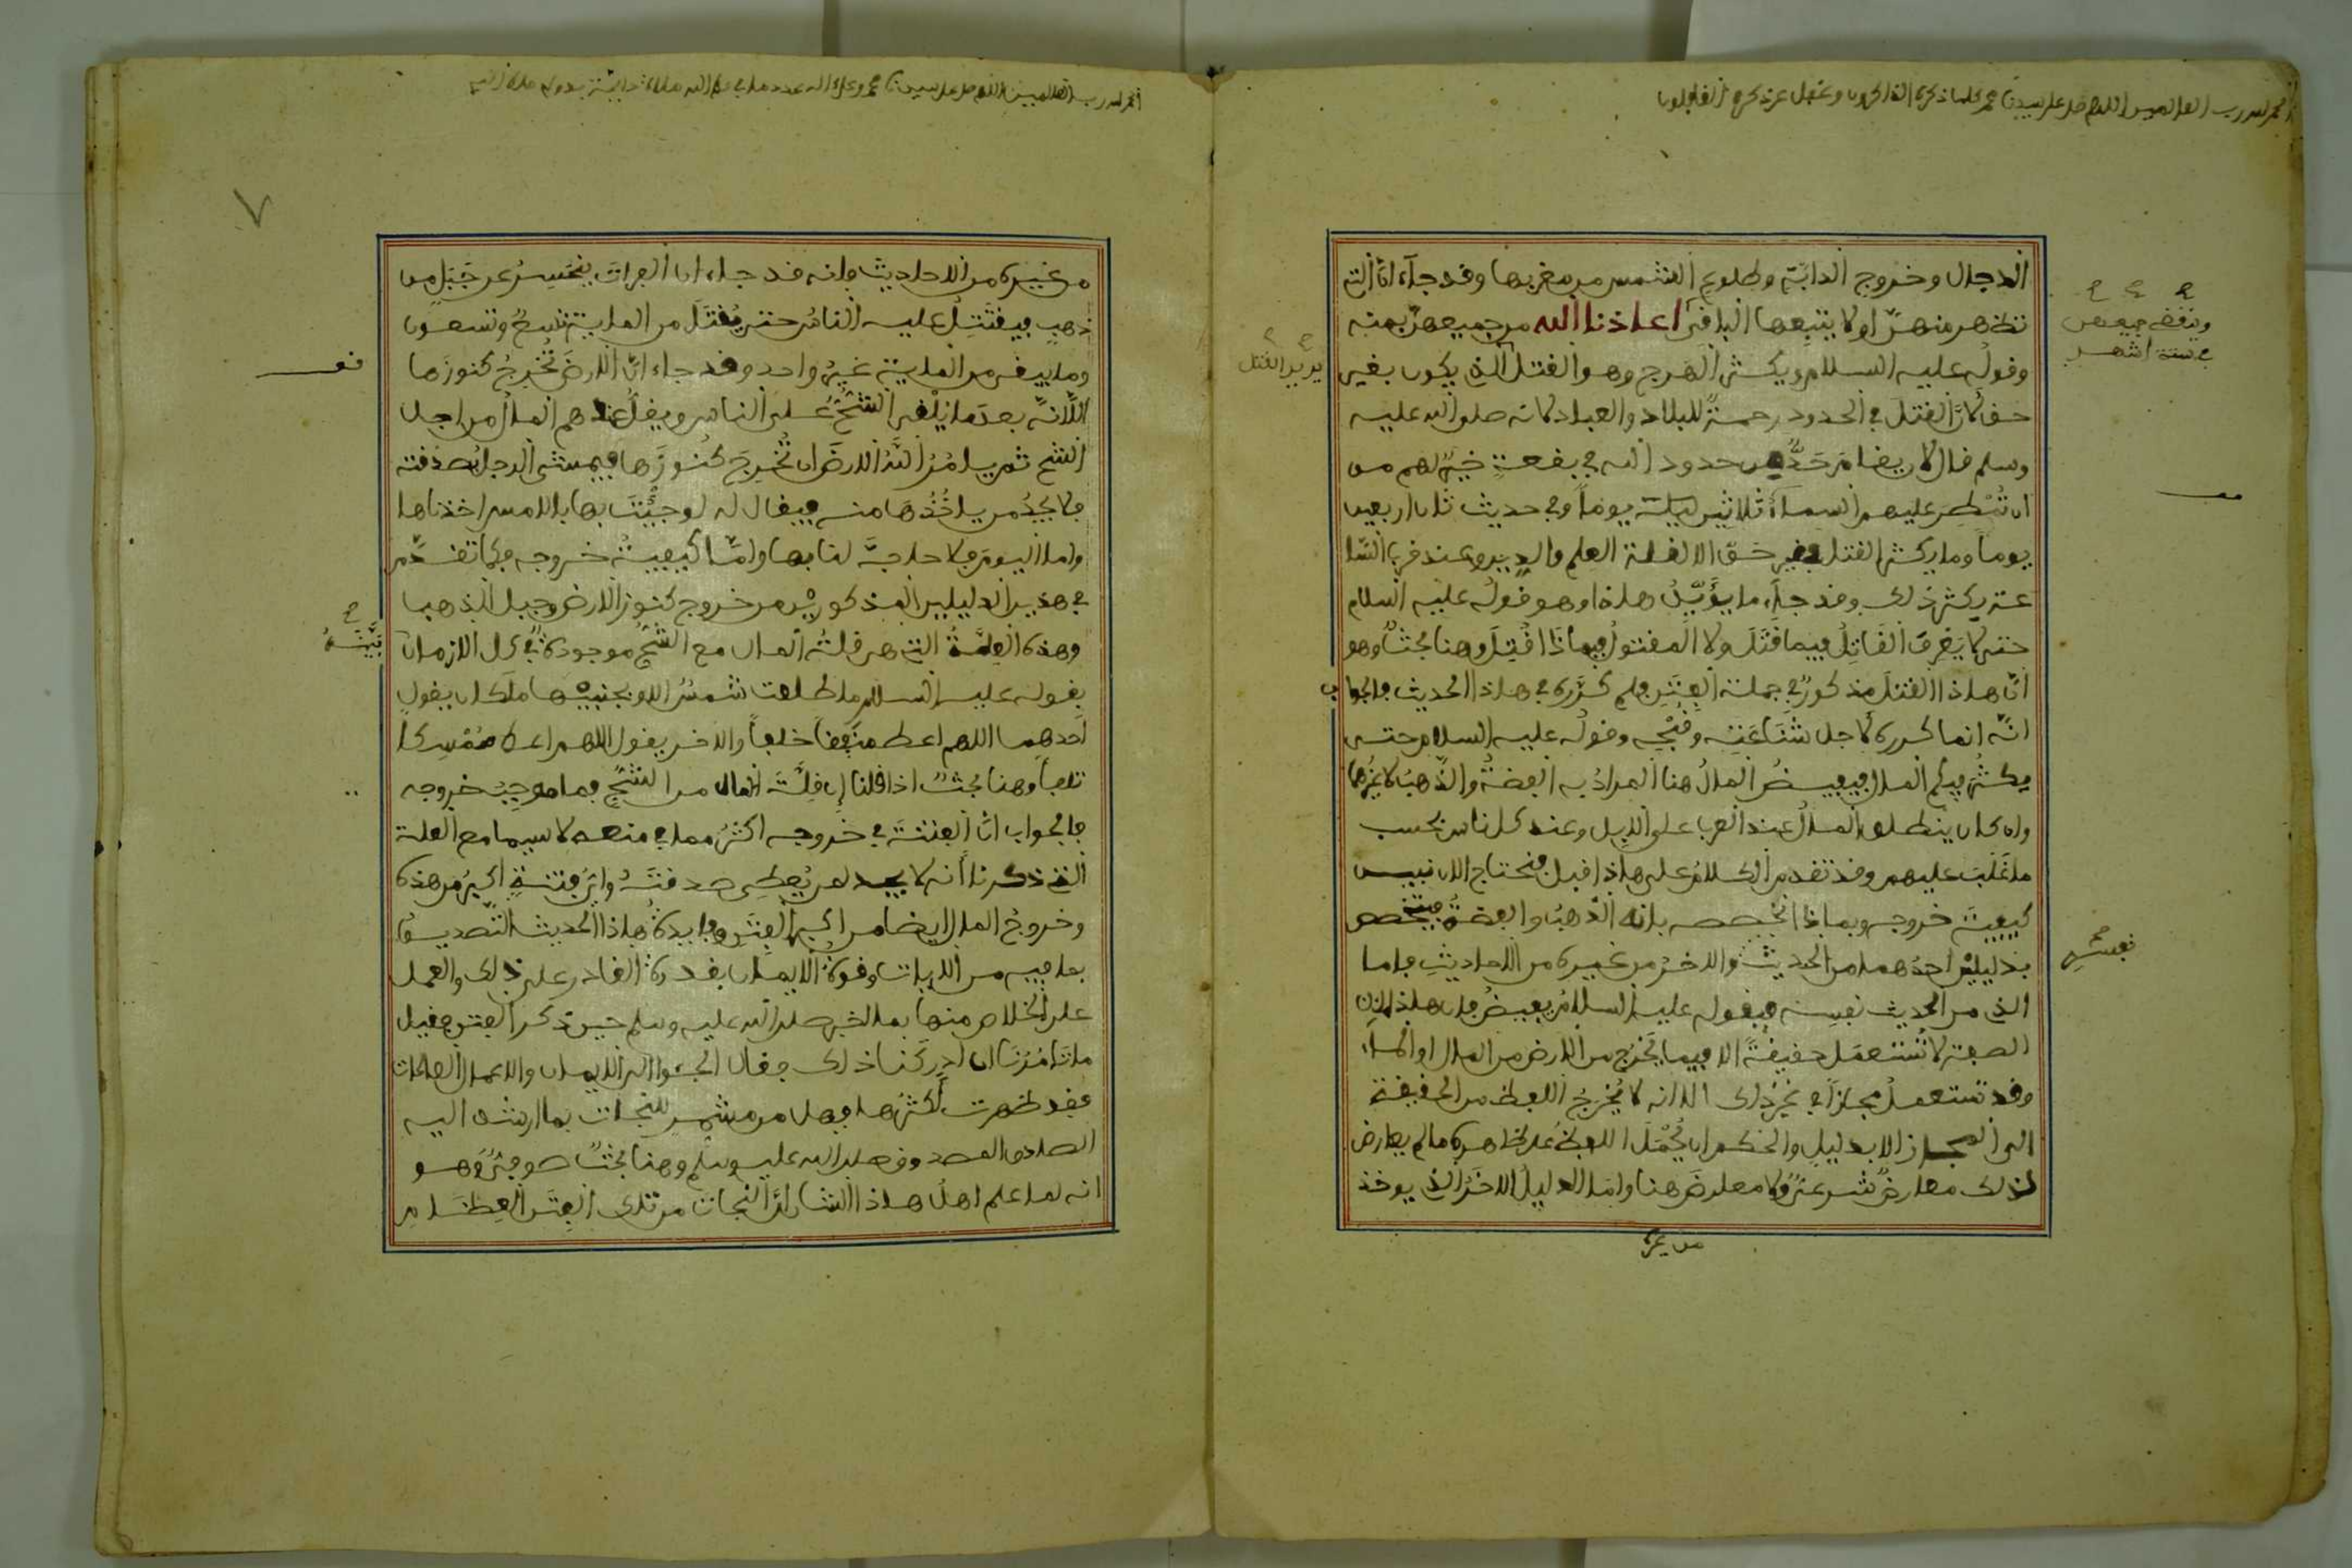 الحمد لله رب العالمين اللهم صل على سيدنا محمد كلما ذكره الذاكرون وغفل عن ذكره الغافلون
الدجال وخروج الدابّة وطلوع الشمس من مغربها وقد جآء انّ التي
تظهر منهنّ اولا يتبعها الباقي اعاذنا الله من جميعهنّ بمنه
وقوله عليه السلام ويكثر الهرج وهو القتل الذي يكون بغير
حق لانّ القتل في الحدود رحمةً للبلاد والعباد لانه صلى الله عليه
وسلم قال لان يقام حدٌّ من حدود الله في بقعةٍ خيرٌ لهم من
ان تمطر عليهم السمآءُ ثلاثين يوماً وفي حديث ثان اربعين
يوما وما يكثر القتل بغير حق الا لقلة العلم والدين وعند قرب السا
عة يكثر ذلك وقد جآء ما يؤيّدُ هاذا وهو قوله عليه السلام
حتى لا يعرف القاتِلُ فيما قتَلَ ولا المقتولُ فيماذا قُتِلَ وهنا بحثٌ وهو
انّ هاذا القتلَ مذكورٌ في جملة الفتن فلم كرَّره في هاذا الحديث فالجواب
انّه انما كرره لاجل شناعَتِه وقُبْحِه وقوله عليه السلام حتى
يكثُر فيكم المال فيفيضُ المالُ هنا المراد به الفضةُ والذّهبُ لا غيرُهما
وان كان ينطلق المالُ عند العرب على الابل وعند كل ناس بحسب
ما غلَبَ عليهم وقد تقدم الكلامُ على هاذا قبل فنحتاج الان نبين
كيفيةَ خروجه وبماذا نخصصه بانه الذّهبُ والفضةُ فيتخصص
بدليلين احدهما من الحديث والاخرُ من غيره من الاحاديثِ فاما
الذي من الحديث نفسِه فبقوله عليه السلامُ يفيضُ فان هاذه
الصيغة لا تُستعمَل حقيقةً الا فيما يَخرُج من الارض من المال او الماء
وقد تستعملُ مجازاً في غير ذلك الا انه لا يُخرِجُ اللفظ من الحقيقة
الى المجاز الا بدليلٍ والحكم ان يُحْمَلَ اللفظُ على ظاهره ما لم يعارض
لذلك معارضٌ شرعيٌّ ولا معارضَ هنا واما الدليلُ الاخَرُ الذي يوخذ
من غيره
وتنقضي جميعهن
في ستة اشهر
يريد القتل
نفسه
الحمد لله رب العالمين اللهم صل على سيدنا محمد وعلى اله عدد ما في علم الله صلاة دايمة بدوام ملك الله
٧
من غيره من الاحاديث فانه قد جاء ان الفرات ينحسِرُ عن جَبَلٍ من
ذهبٍ فيقتَتِلُ عليه الناسُ حتى يُقتَلَ من الماية تسعٌ وتسعون
وما يبقى من الماية غيرُ واحد وقد جاء انّ الارضَ تُخرِجُ كنوزَها
لانّه بعدما يُلقى الشُّحُّ على الناس ويقلُّ عندهم المالُ من اجل
الشح ثم يامُرُ اللهُ الارضَ ان تُخرِجَ كُنُوزَها فيمشي الرجلُ بصدقته
فلا يجدُ من ياخُذُها منه فيقال له لو جئتَ بها بالامس اخذناها
واما اليومَ فلا حاجةَ لنا بها وامّا كيفيةُ خروجه فكما تقدّم
في هذين الدليلين المذكورَيْن من خروج كنوز الارض وجبل الذهب
وهذه العِلّةُ التي هي قلةُ المال مع الشحِّ موجودةٌ في كل الازمان
بقوله عليه السلام ما طلعت شمسُ الا وبجنبيْها ملَكان يقول
احدهما اللهم اعط منفقاً خلفاً والاخر يقول اللهم اعط ممْسِكا
تلفاً وهنا بحثٌ اذا قلنا ان قِلّةَ المال من الشحِّ فما موجِبُ خروجه
فالجواب انّ الفتنةَ في خروجه اكثرُ مما في منعه لا سيما مع العلة
التي ذكرنا انه لا يجد لمن يُعطي صدقتَهُ وايّ فتنةٍ اكبرُ من هذه
وخروجُ المال ايضا من اكبر الفِتَن وفايدةُ هاذا الحديث التّصديقُ
بما فيه من الايات وقوةُ الايمان بقدرة القادر على ذلك والعمل
على الخلاص منها بما اخبر صلى الله عليه وسلم حين ذكر الفتن فقيل
ما تامُرُنا ان ادركنا ذلك فقال الجئوا الى الايمان والاعمال الصالحات
فقد ظهرت أكثرُها فهل من مشمر للنجات بما ارشد اليه
الصادق المصدوق صلى الله عليه وسلم وهنا بحثٌ صوفيٌّ وهو
انه لما علم اهلُ هاذا الشان انّ النجات من تلك الفِتَن العِظَام
بيّنة